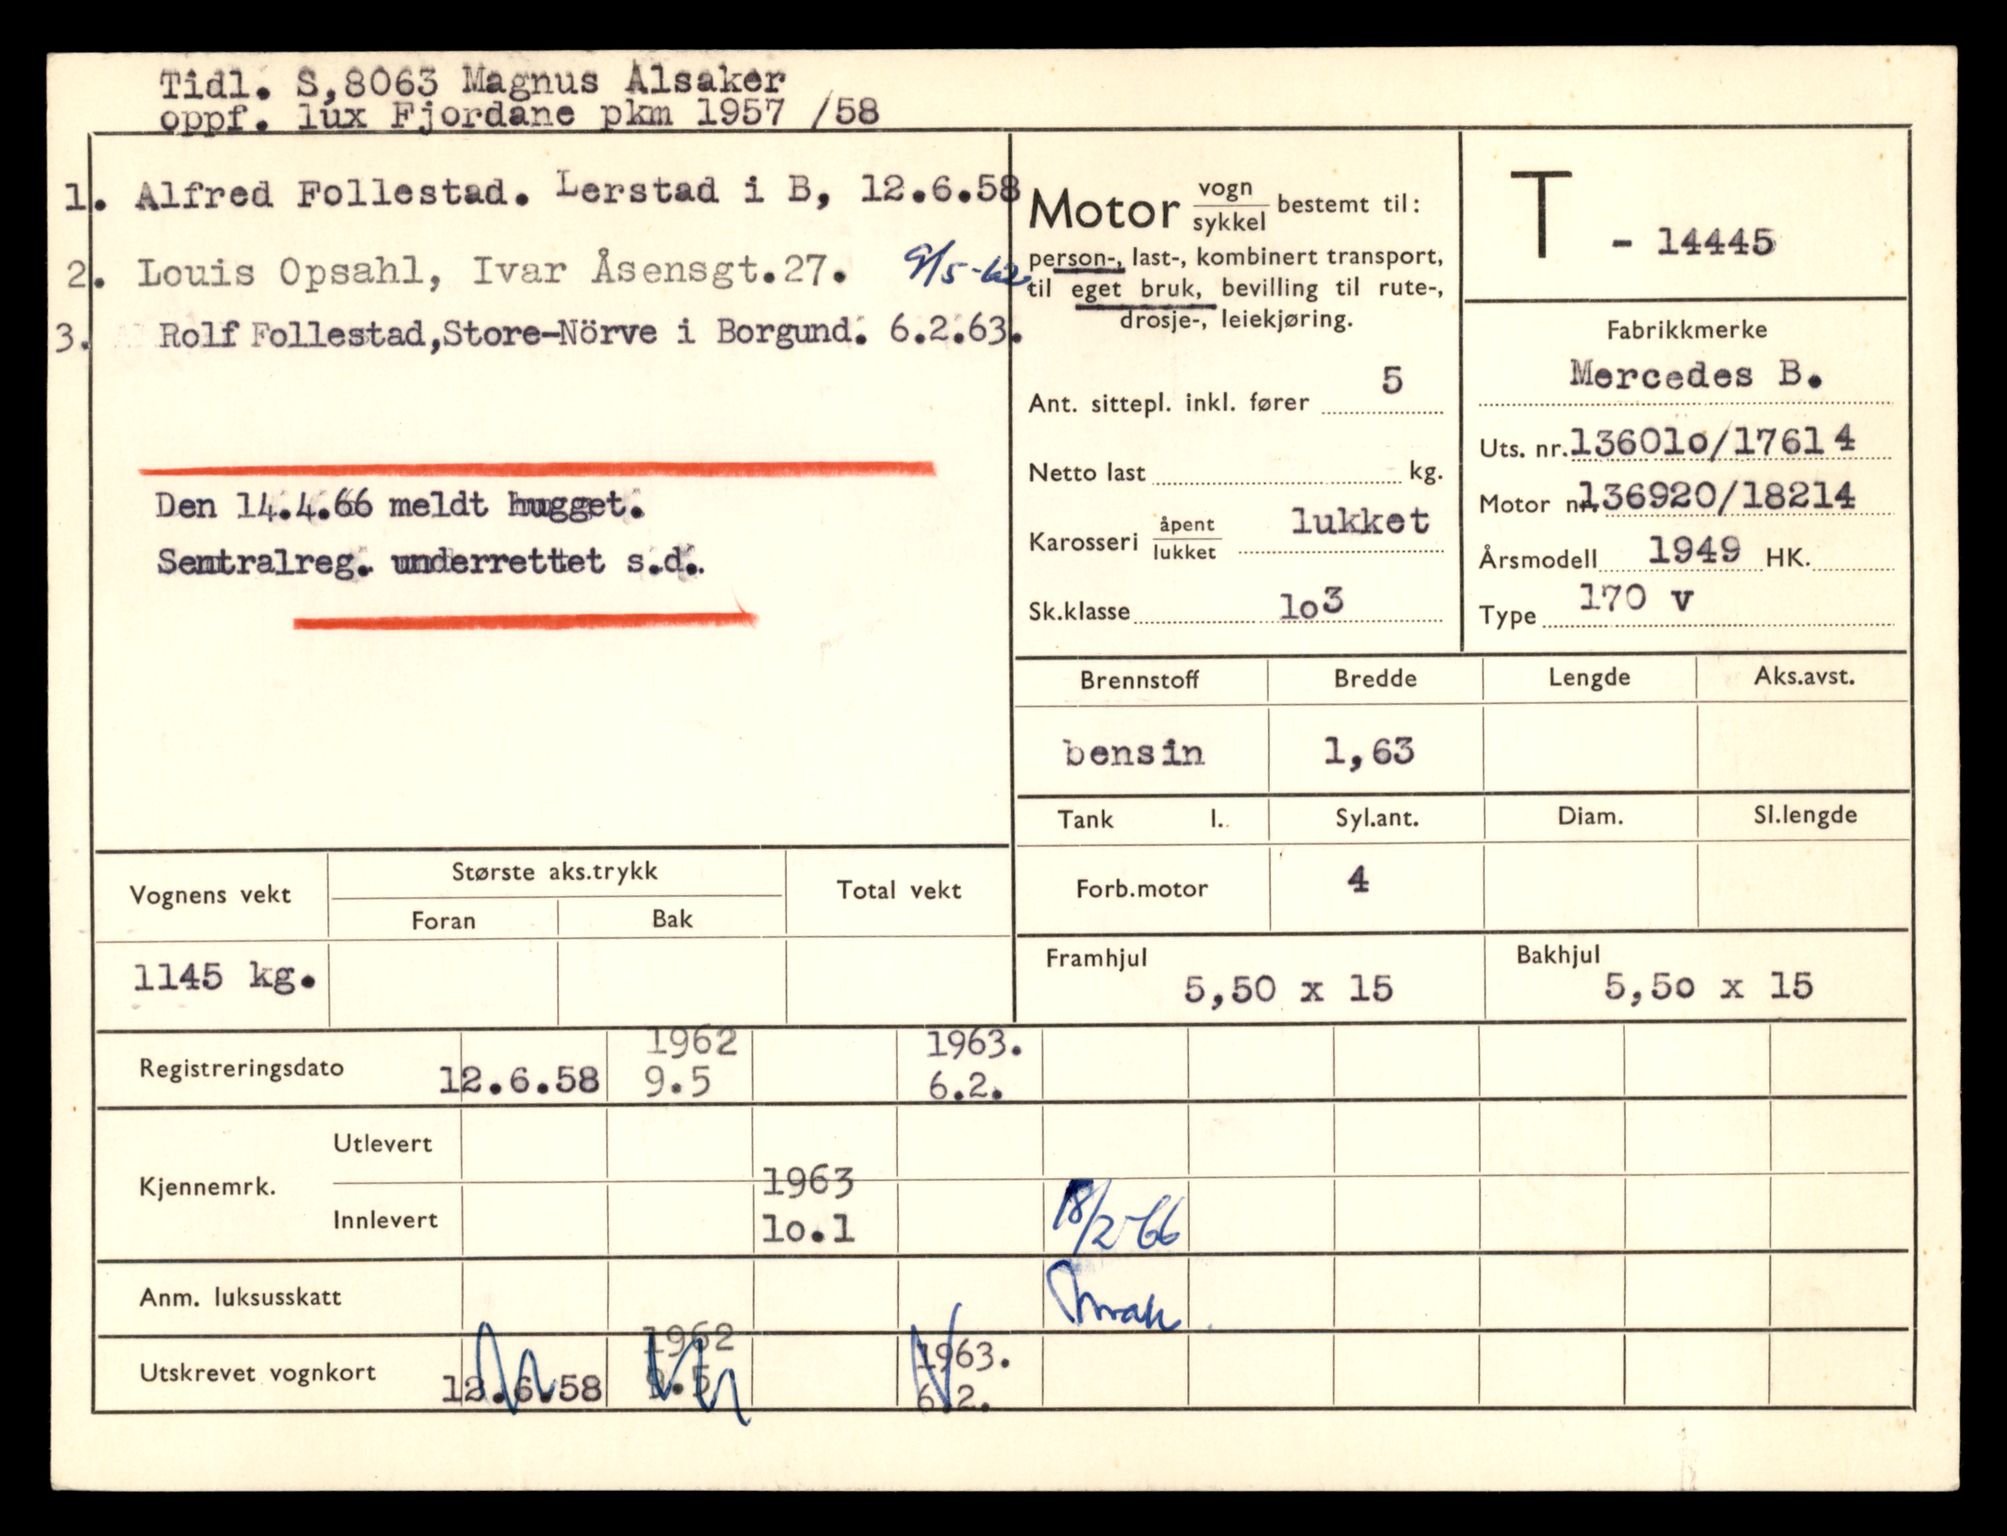 Tidl. S,8063 Magnus Alsaker
oppf. lux Fjordane pkm 1957 /58
1. Alfred Follestad. Lerstad i B, 12.6.58
2. Louis Opsahl, Ivar Åsensgt.27. 9/5-62
3. Rolf Follestad,Store-Nörve i Borgund. 6.2.63.
Den 14.4.66 meldt hugget.
Sentralreg. underrettet s.d.
Motor vogn/sykkel bestemt til:
person-, last-, kombinert transport,
til eget bruk, bevilling til rute-,
drosje-, leiekjøring.
Ant. sittepl. inkl. fører 5
Netto last kg.
Karosseri åpent/lukket lukket
Sk.klasse lo3
T - 14445
Fabrikkmerke
Mercedes B.
Uts. nr. 13601o/17614
Motor nr. 136920/18214
Årsmodell 1949 HK.
Type 170 v
Brennstoff Bredde Lengde Aks.avst.
bensin 1,63
Tank l. Syl.ant. Diam. Sl.lengde
Forb.motor 4
Framhjul 5,50 x 15 Bakhjul 5,5o x 15
Vognens vekt Største aks.trykk Total vekt
Foran Bak
1145 kg.
Registreringsdato 12.6.58 1962 9.5 1963. 6.2.
Kjennemrk. Utlevert
Innlevert 1963 lo.1 18/2-66
Anm. luksusskatt
Utskrevet vognkort 12.6.58 1962 9.5 1963. 6.2.